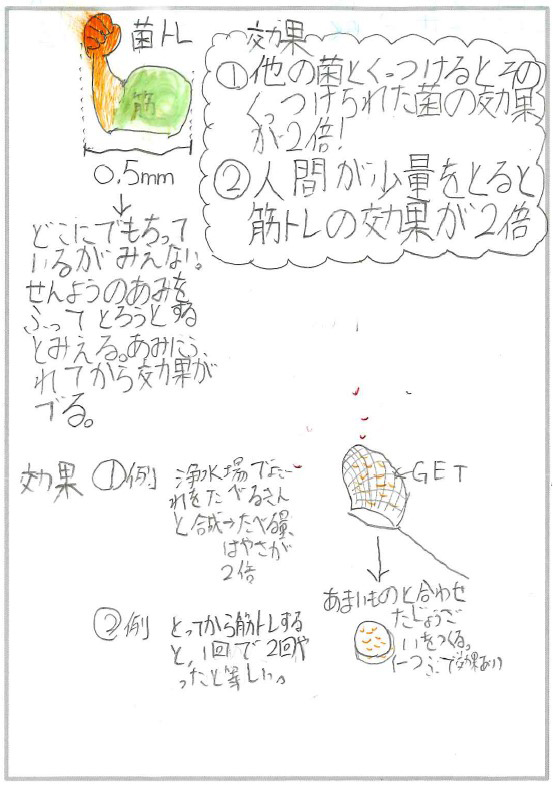 菌トレ
筋
0.5mm
効果
①他の菌とくっつけるとその
くっつけられた菌の効果
が2倍!
②人間が少量をとると
筋トレの効果が2倍
どこにでもちって
いるがみえない。
せんようのあみを
ふってとろうとする
とみえる。あみにふ
れてから効果が
でる。
効果 ①例
浄水場でよご
れをたべるきん
と合成→たべる量、
はやさが
2倍
②例
とってから筋トレする
と、1回で2回や
ったと等しい。
GET
あまいものと合わせ
たじょうざ
いをつくる。
一つぶで効果あり